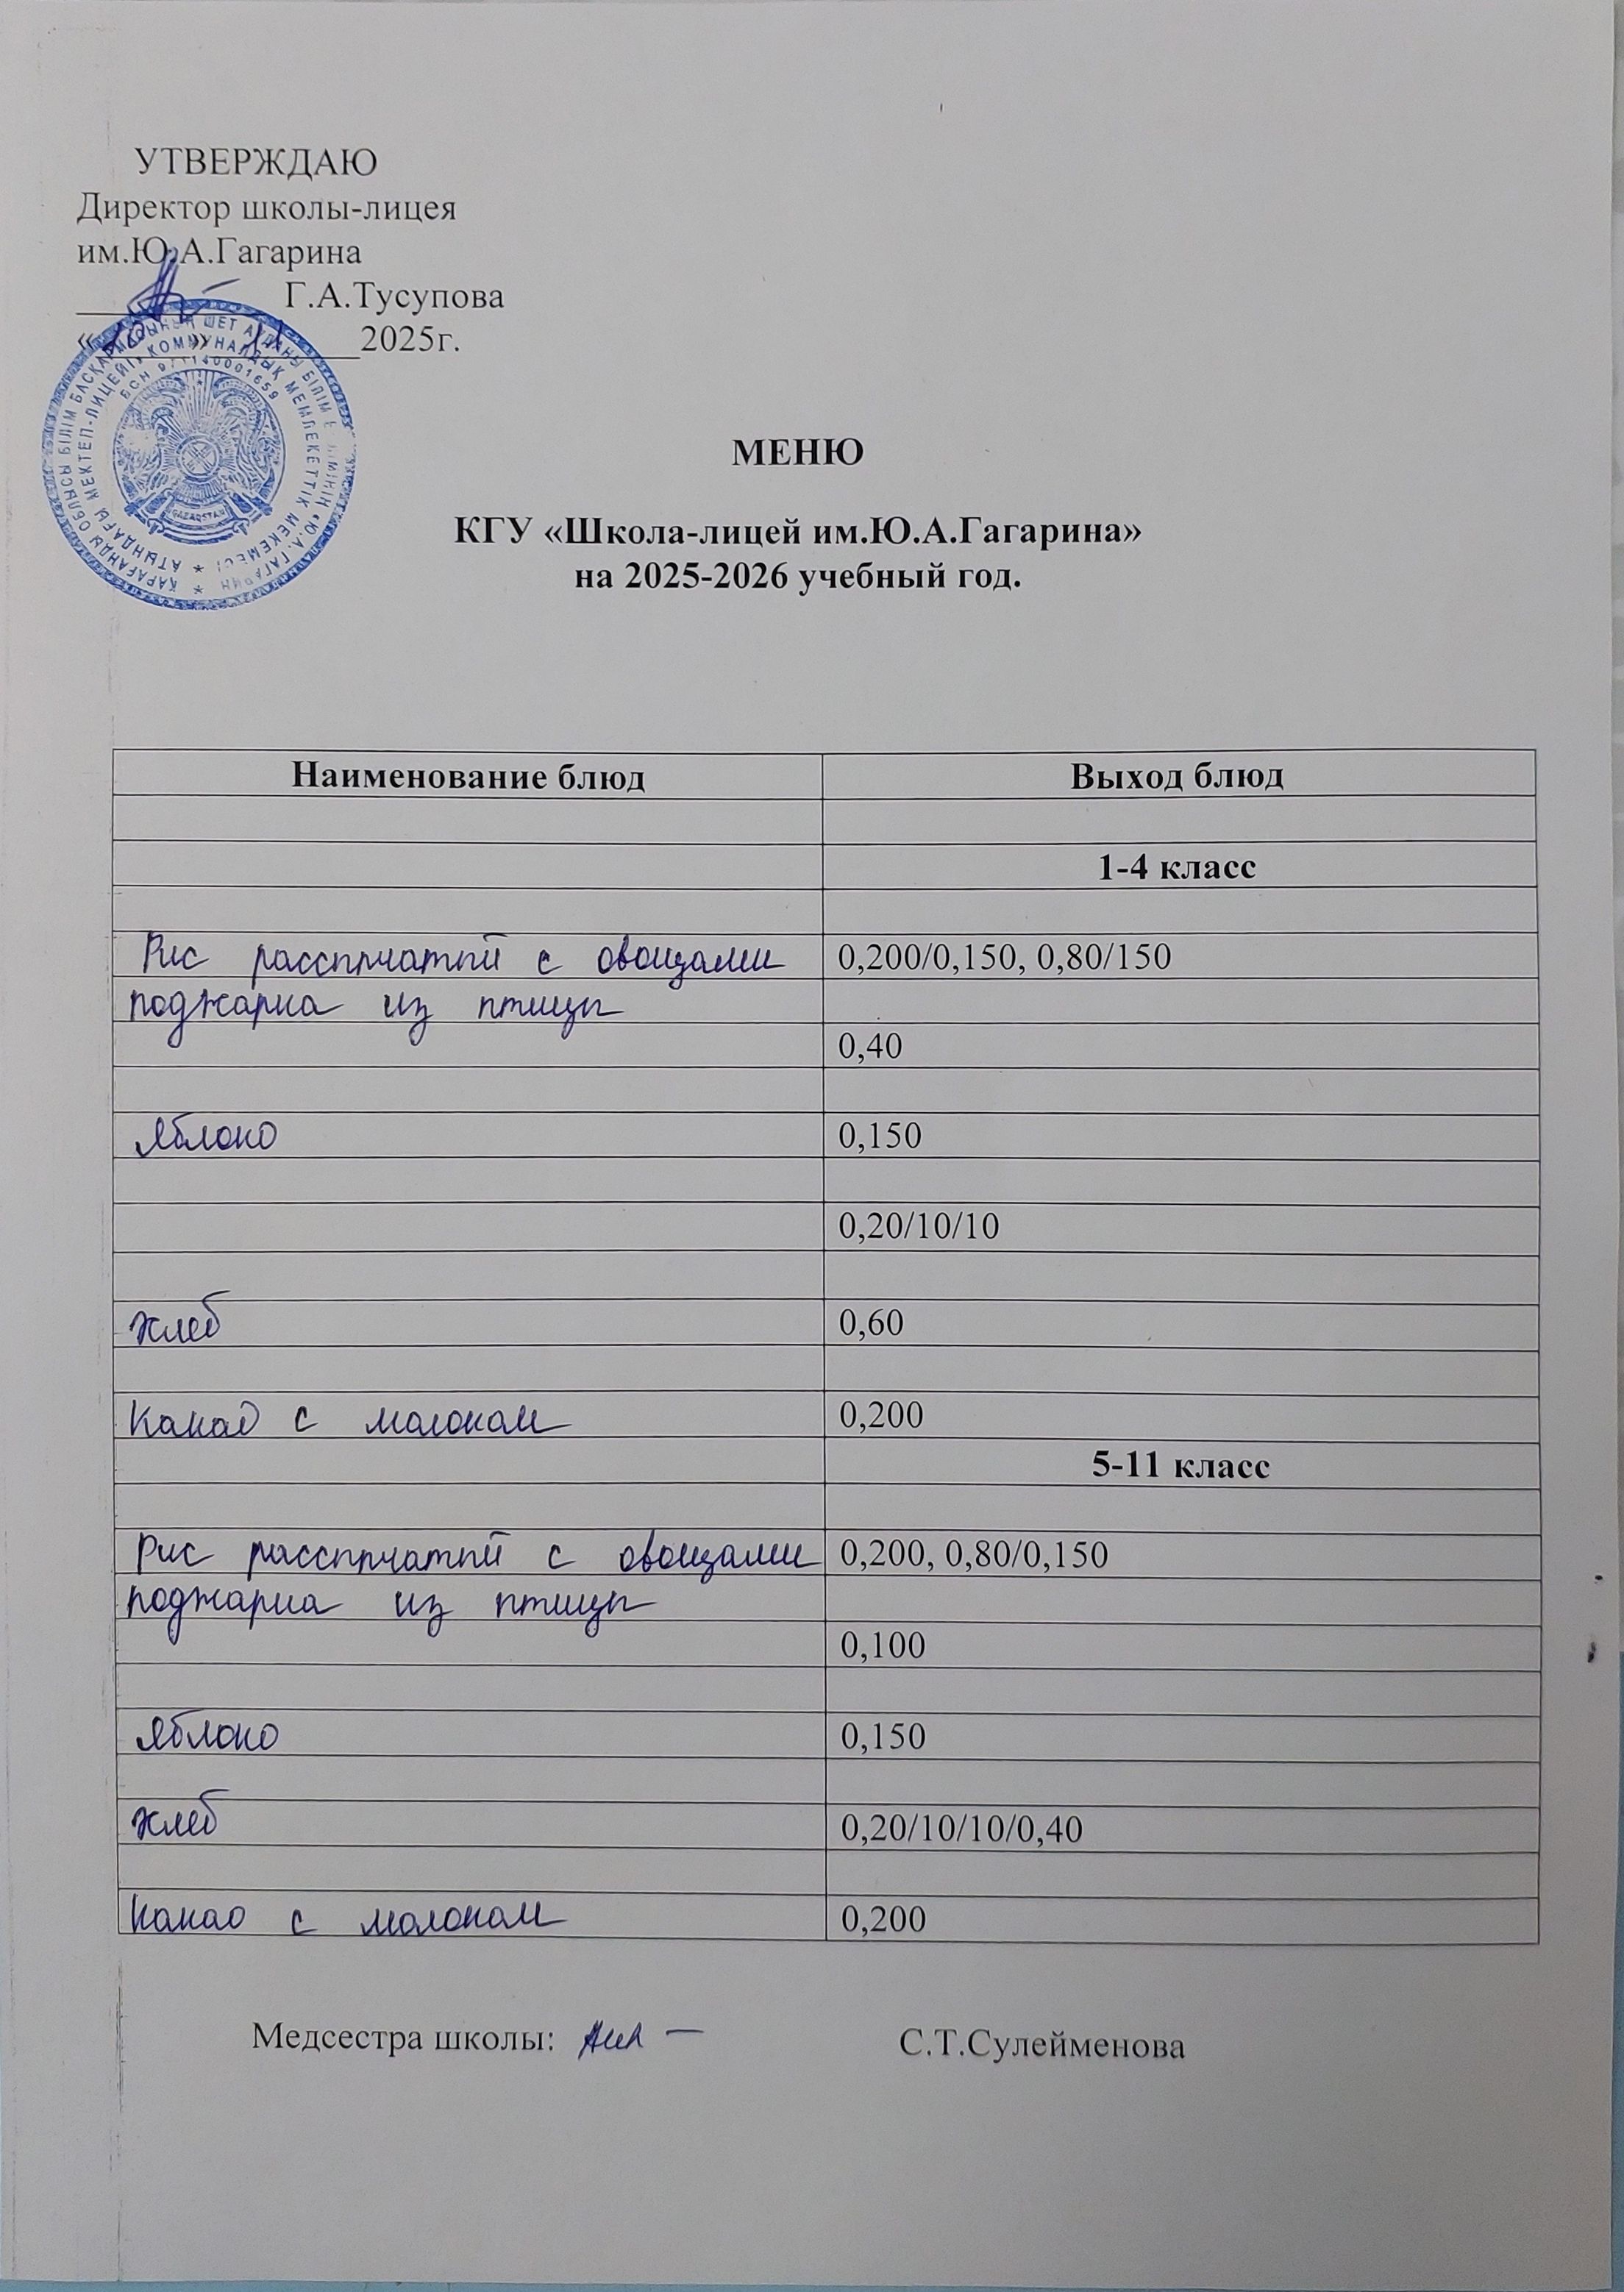 УТВЕРЖДАЮ
Директор школы-лицея
им.Ю.А.Гагарина
Г.А.Тусупова
« » 2025г.
ҚАРАҒАНДЫ ОБЛЫСЫ БІЛІМ БАСҚАРМАСЫНЫҢ ШЕТ АУДАНЫ БІЛІМ БӨЛІМІНІҢ «Ю.А. ГАГАРИН
АТЫНДАҒЫ МЕКТЕП-ЛИЦЕЙІ» КОММУНАЛДЫҚ МЕМЛЕКЕТТІК МЕКЕМЕСІ
БСН 971140001659
QAZAQSTAN
МЕНЮ
КГУ «Школа-лицей им.Ю.А.Гагарина»
на 2025-2026 учебный год.
Наименование блюд Выход блюд
1-4 класс
Рис рассыпчатый с овощами 0,200/0,150, 0,80/150
поджарка из птицы
0,40
Яблоко 0,150
0,20/10/10
Хлеб 0,60
Какао с молоком 0,200
5-11 класс
Рис рассыпчатый с овощами 0,200, 0,80/0,150
поджарка из птицы
0,100
Яблоко 0,150
Хлеб 0,20/10/10/0,40
Какао с молоком 0,200
Медсестра школы: С.Т.Сулейменова